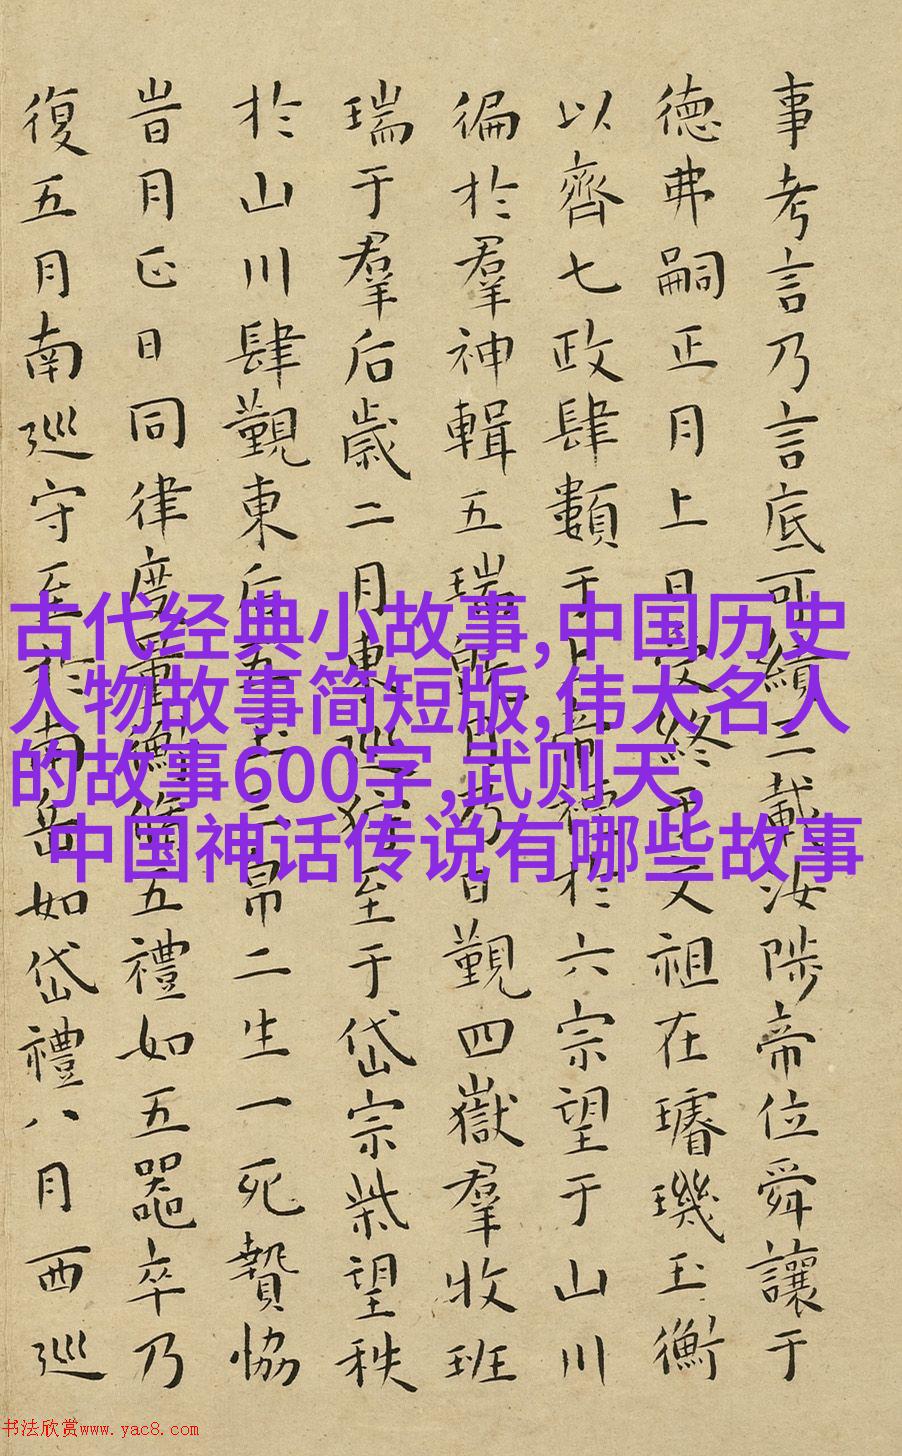 事考言乃言底可績三載汝陟帝位舜讓于
德弗嗣正月上日受終于文祖在璿璣玉衡
以齊七政肆類于上帝禋於六宗望于山川
徧於羣神輯五瑞既月乃日覲四嶽羣牧班
瑞于羣后歲二月東巡狩至于岱宗祡望秩
於山川肆覲東后五玉三帛二生一死贄協
旹月正日同律度量衡脩五禮如五器卒乃
復五月南巡守至於南岳如岱禮八月西巡
古代经典小故事,中国历史
人物故事简短版,伟大名人
的故事600字,武则天,
中国神话传说有哪些故事
书法欣赏www.yac8.com